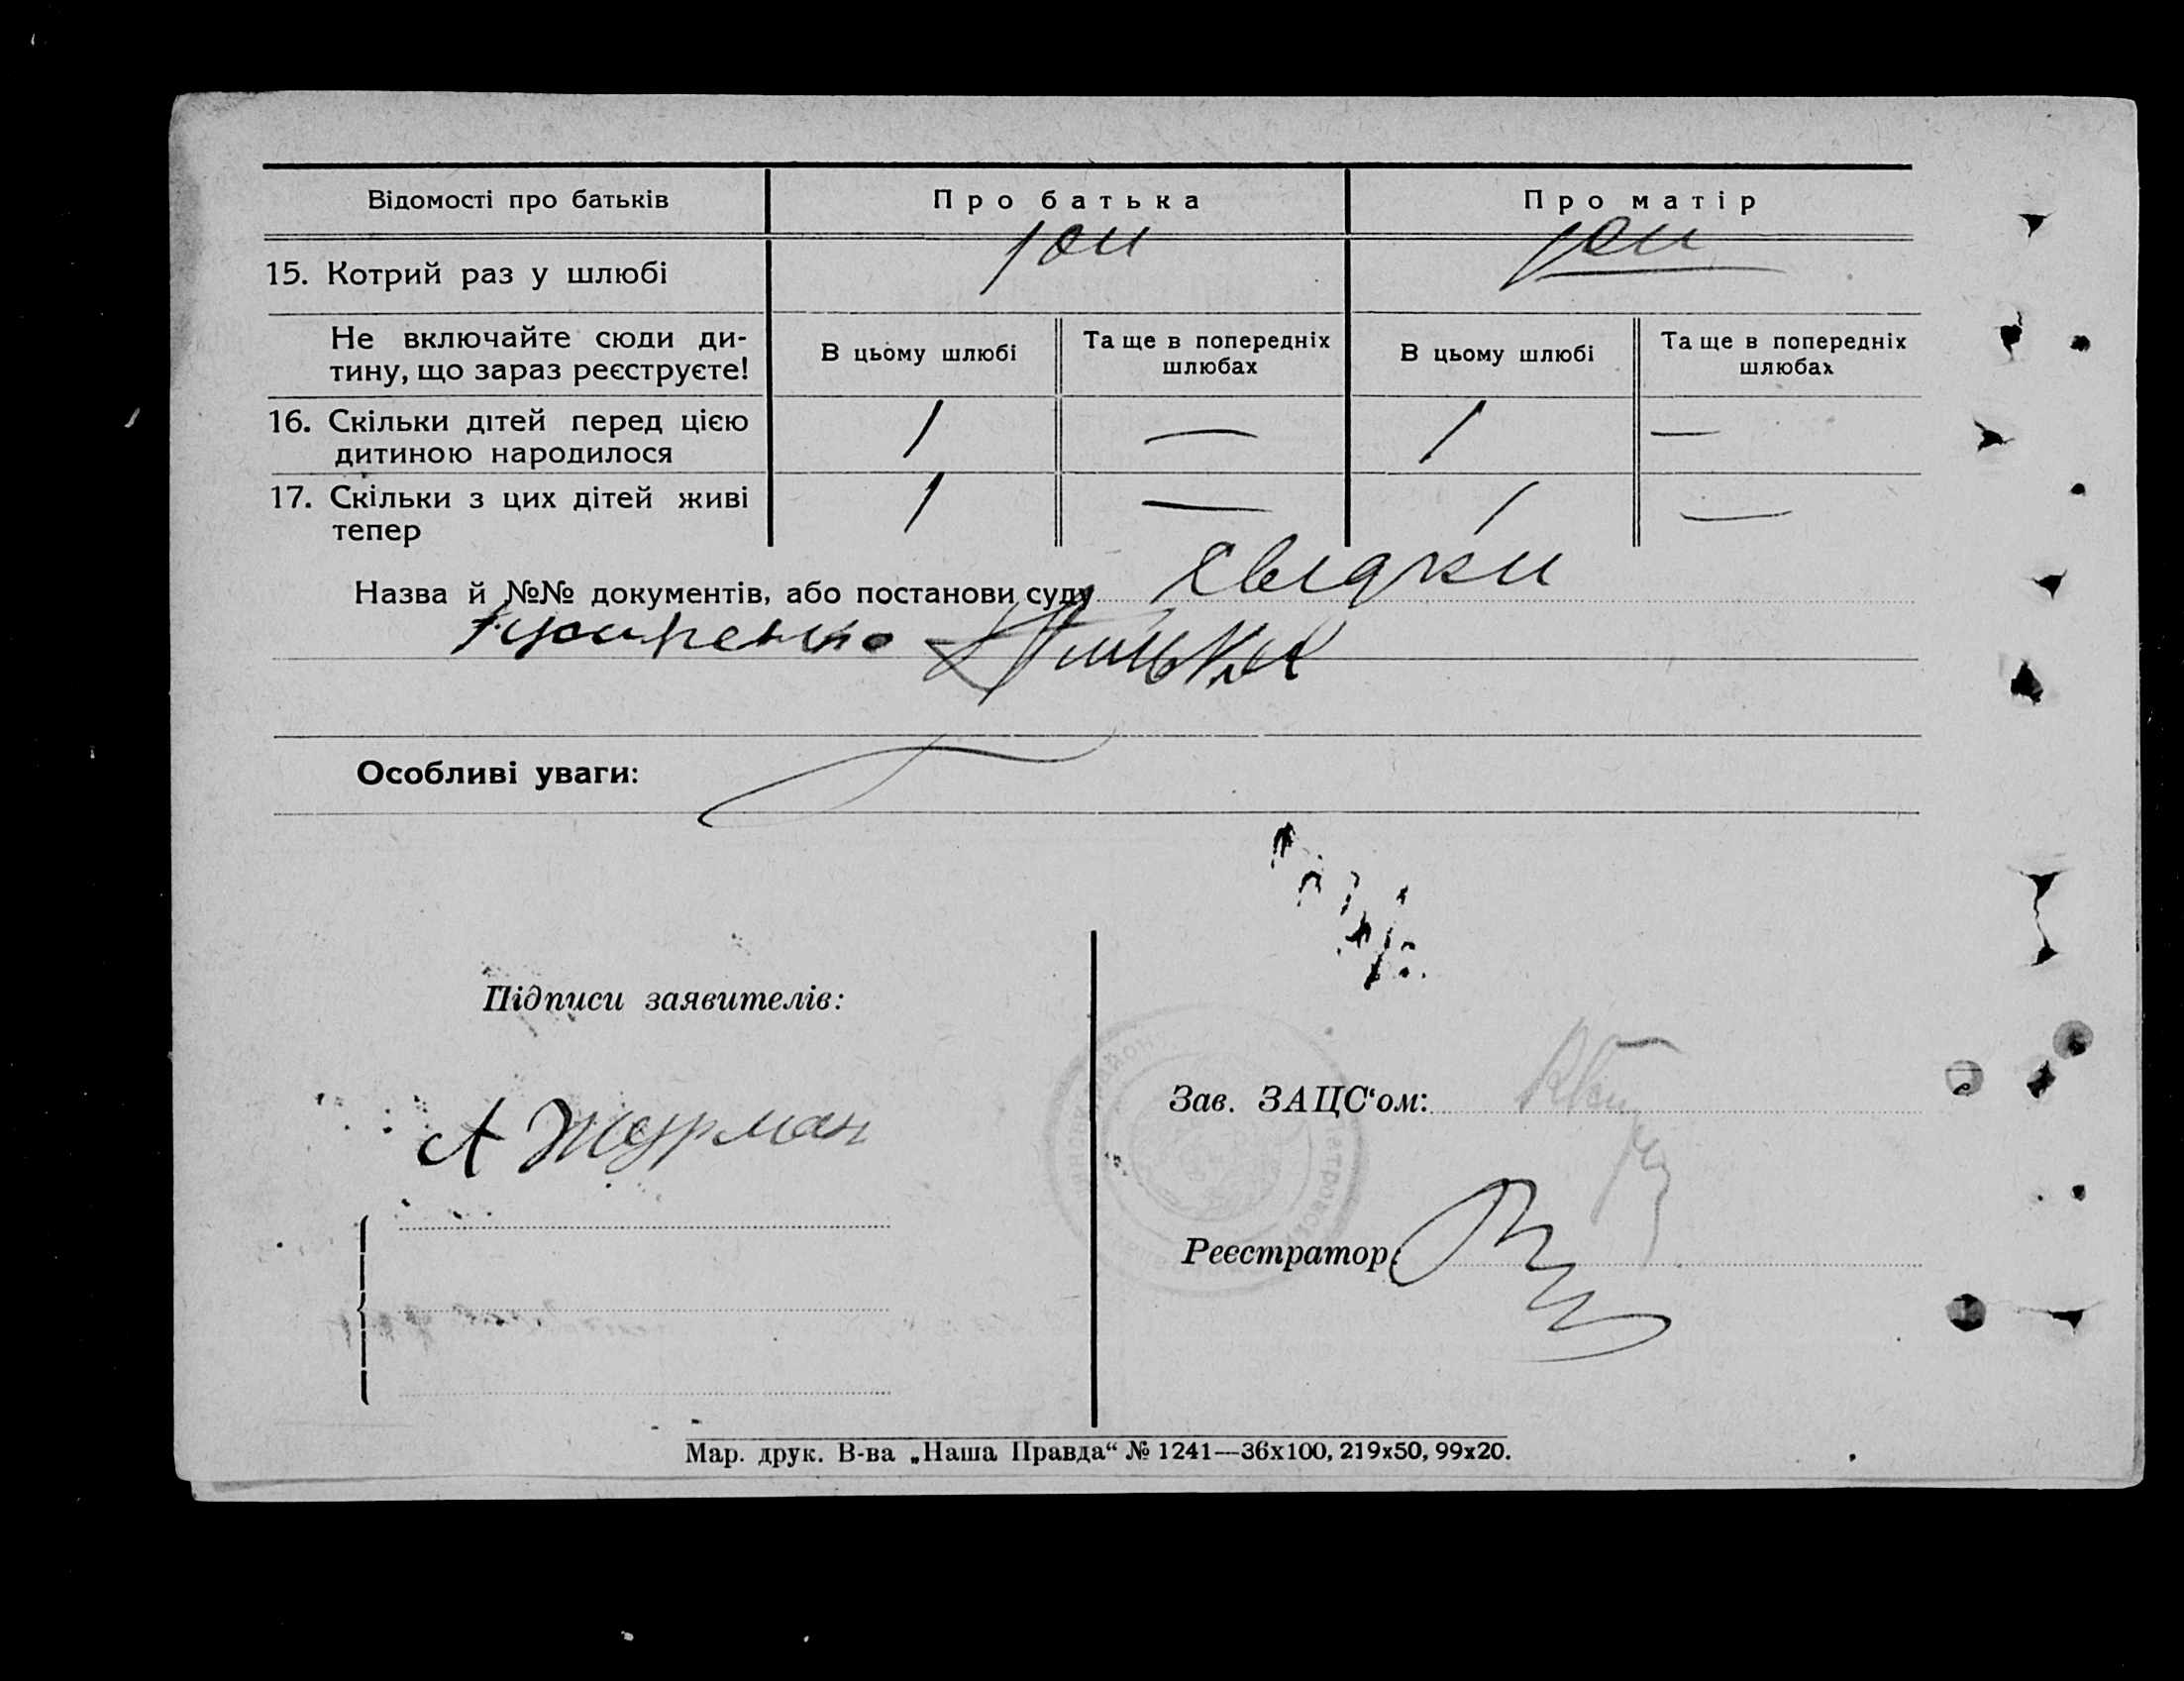 Відомості про батьків Про батька Про матір
15. Котрий раз у шлюбі 1ои 1ои
Не включайте сюди ди-
тину, що зараз реєструєте!
В цьому шлюбі
Та ще в попередніх
шлюбах
В цьому шлюбі
Та ще в попередніх
шлюбах
16. Скільки дітей перед цією
дитиною народилося
1 — 1 —
17. Скільки з цих дітей живі
тепер
1 — 1 —
Назва й №№ документів, або постанови суду свідки
Особливі уваги:
Підписи заявителів:
А Журман
Зав. ЗАЦС‘ом:
Реєстратор:
Мар. друк. В-ва „Наша Правда“ № 1241—36х100, 219х50, 99х20.